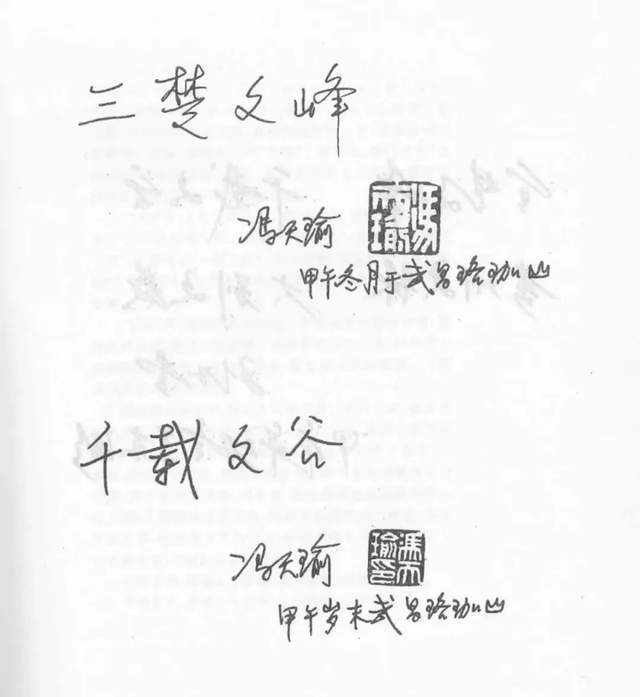 三楚文峰
冯天瑜
冯天瑜
甲午冬月于武昌珞珈山
千载文谷
冯天瑜
冯天瑜印
甲午岁末武昌珞珈山